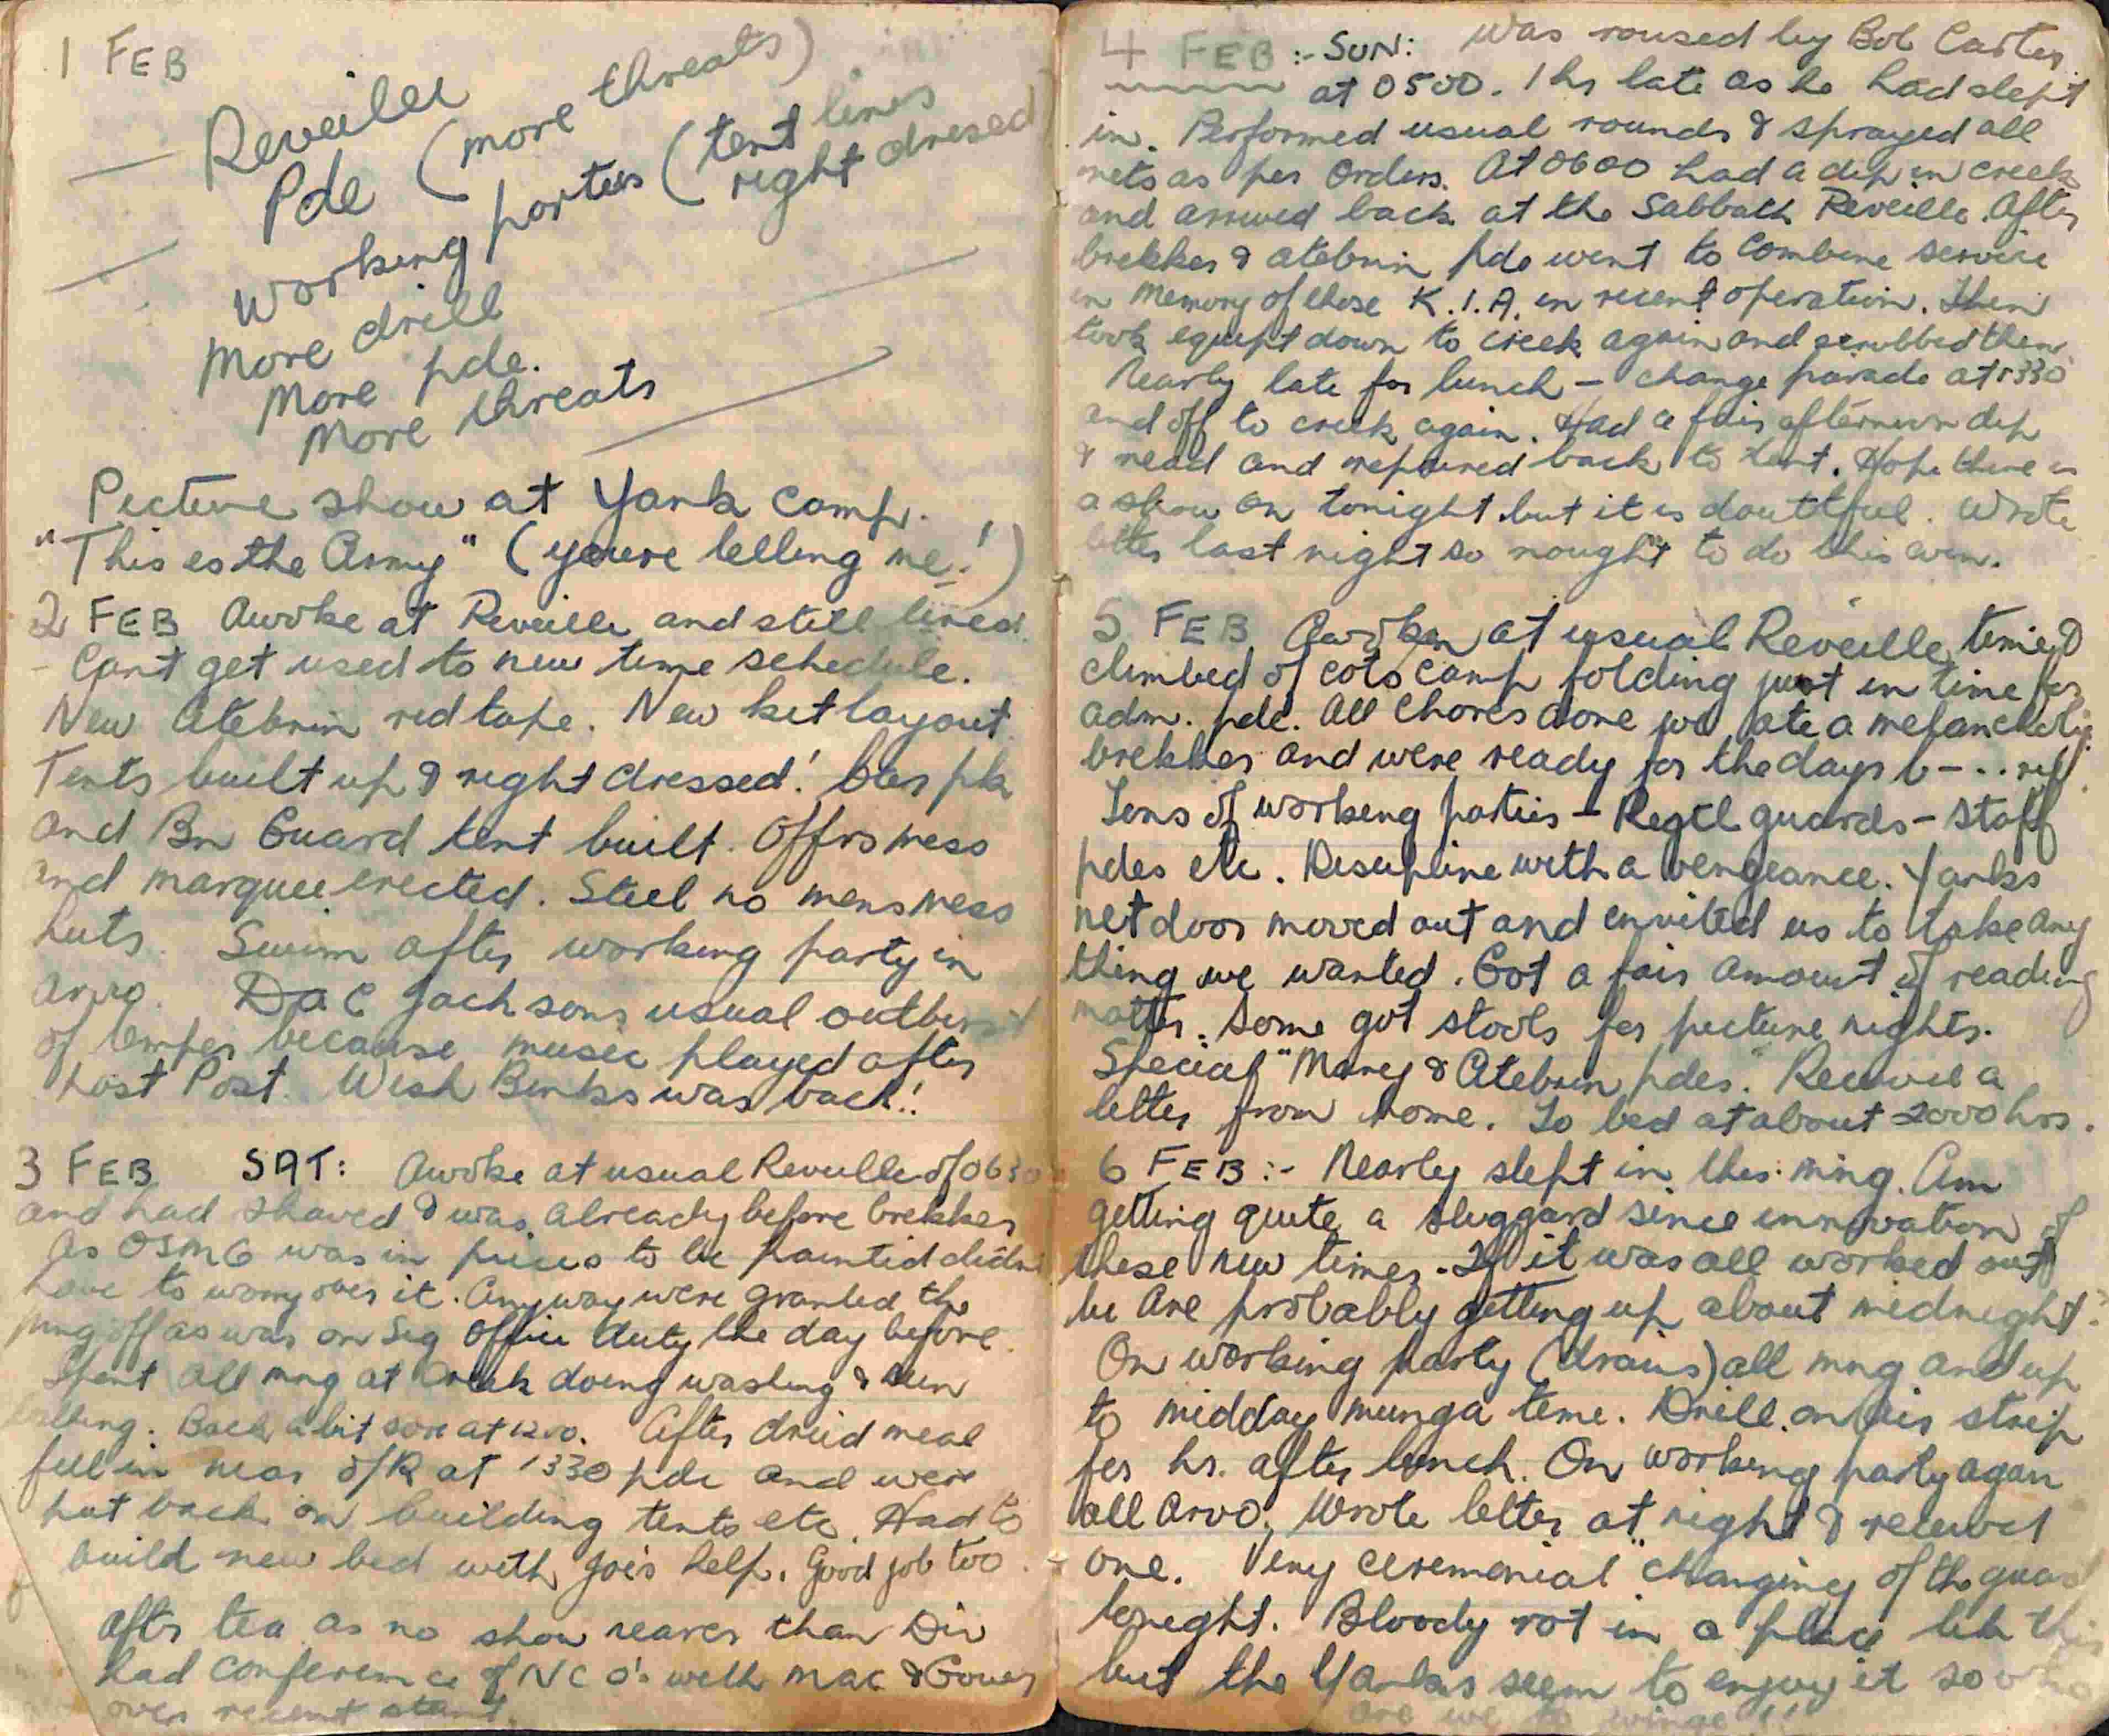 1 FEB
Reveille
Pde (more threats)
working parties (tent lines
right dressed)
More drill
More pde.
More threats
Picture show at Yank Camp.
"This is the Army" (you're telling me!)
2 FEB Awoke at Reveille and still tired.
- Cant get used to new time schedule.
New Atebrin red tape. New kit layout.
Tents built up & right dressed! Car pk
and Bn Guard tent built. Offrs mess
and marquee erected. Still no mens mess
huts. Swim after working party in
arvo. Jacksons usual outburst
of temper because music played after
Last Post. Wish Binks was back!!
3 FEB SAT: Awoke at usual Reveille of 0630
and had shaved & was already before brekker
As was in pieces to be painted didnt
have to worry over it. Anyway were granted the
mng off as was on Sig Office duty the day before.
Spent all mng at creek doing washing & sun
bathing. Back a bit sore at 1200. After dried meal
fell in near at 1330 pde and were
put back on building tents etc. Had to
build new bed with Joe's help. Good job too.
After tea as no show nearer than Div
had conference of NCO's with Mac &
over recent
4 FEB :- SUN: Was roused by Bob Carter
at 0500. 1 hr late as he had slept
in. Performed usual rounds & sprayed all
nets as per Orders. At 0600 had a dip in creek
and arrived back at the Sabbath Reveille. After
brekker & atebrin pde went to Combine service
in memory of those K.I.A. in recent operation. Then
took equipt down to creek again and scrubbed them.
Nearly late for lunch - change parade at 1330
and off to creek again. Had a fair afternoon dip
& read and repaired back to tent. Hope there is
a show on tonight but it is doubtful. Wrote
letter last night so nought to do this even.
5 FEB Awoken at usual Reveille time &
climbed of cots camp folding just in time for
adm. pde. All Chores done we ate a melancholy
brekker and were ready for the days b-..
Tons of working parties - Regtl guards - staff
pdes etc. Discipline with a vengeance. Yanks
net door moved out and invited us to take any
thing we wanted. Got a fair amount of reading
matter. Some got stools for picture nights.
Special & Atebrin pdes. Receive a
letter from home. To bed at about 2000 hrs.
6 FEB :- Nearly slept in this mng. Am
getting quite a sluggard since innovation of
these new times. If it was all worked out
we are probably getting up about midnight?
On working party (drains) all mng and up
to midday munga time. Drill on air strip
for hr. after lunch. On working party again
all arvo. Wrote letter at night & received
one. Very ceremonial "changing of the guard
tonight. Bloody rot in a place like this
but the Yanks seem to enjoy it so who
are we to winge!!